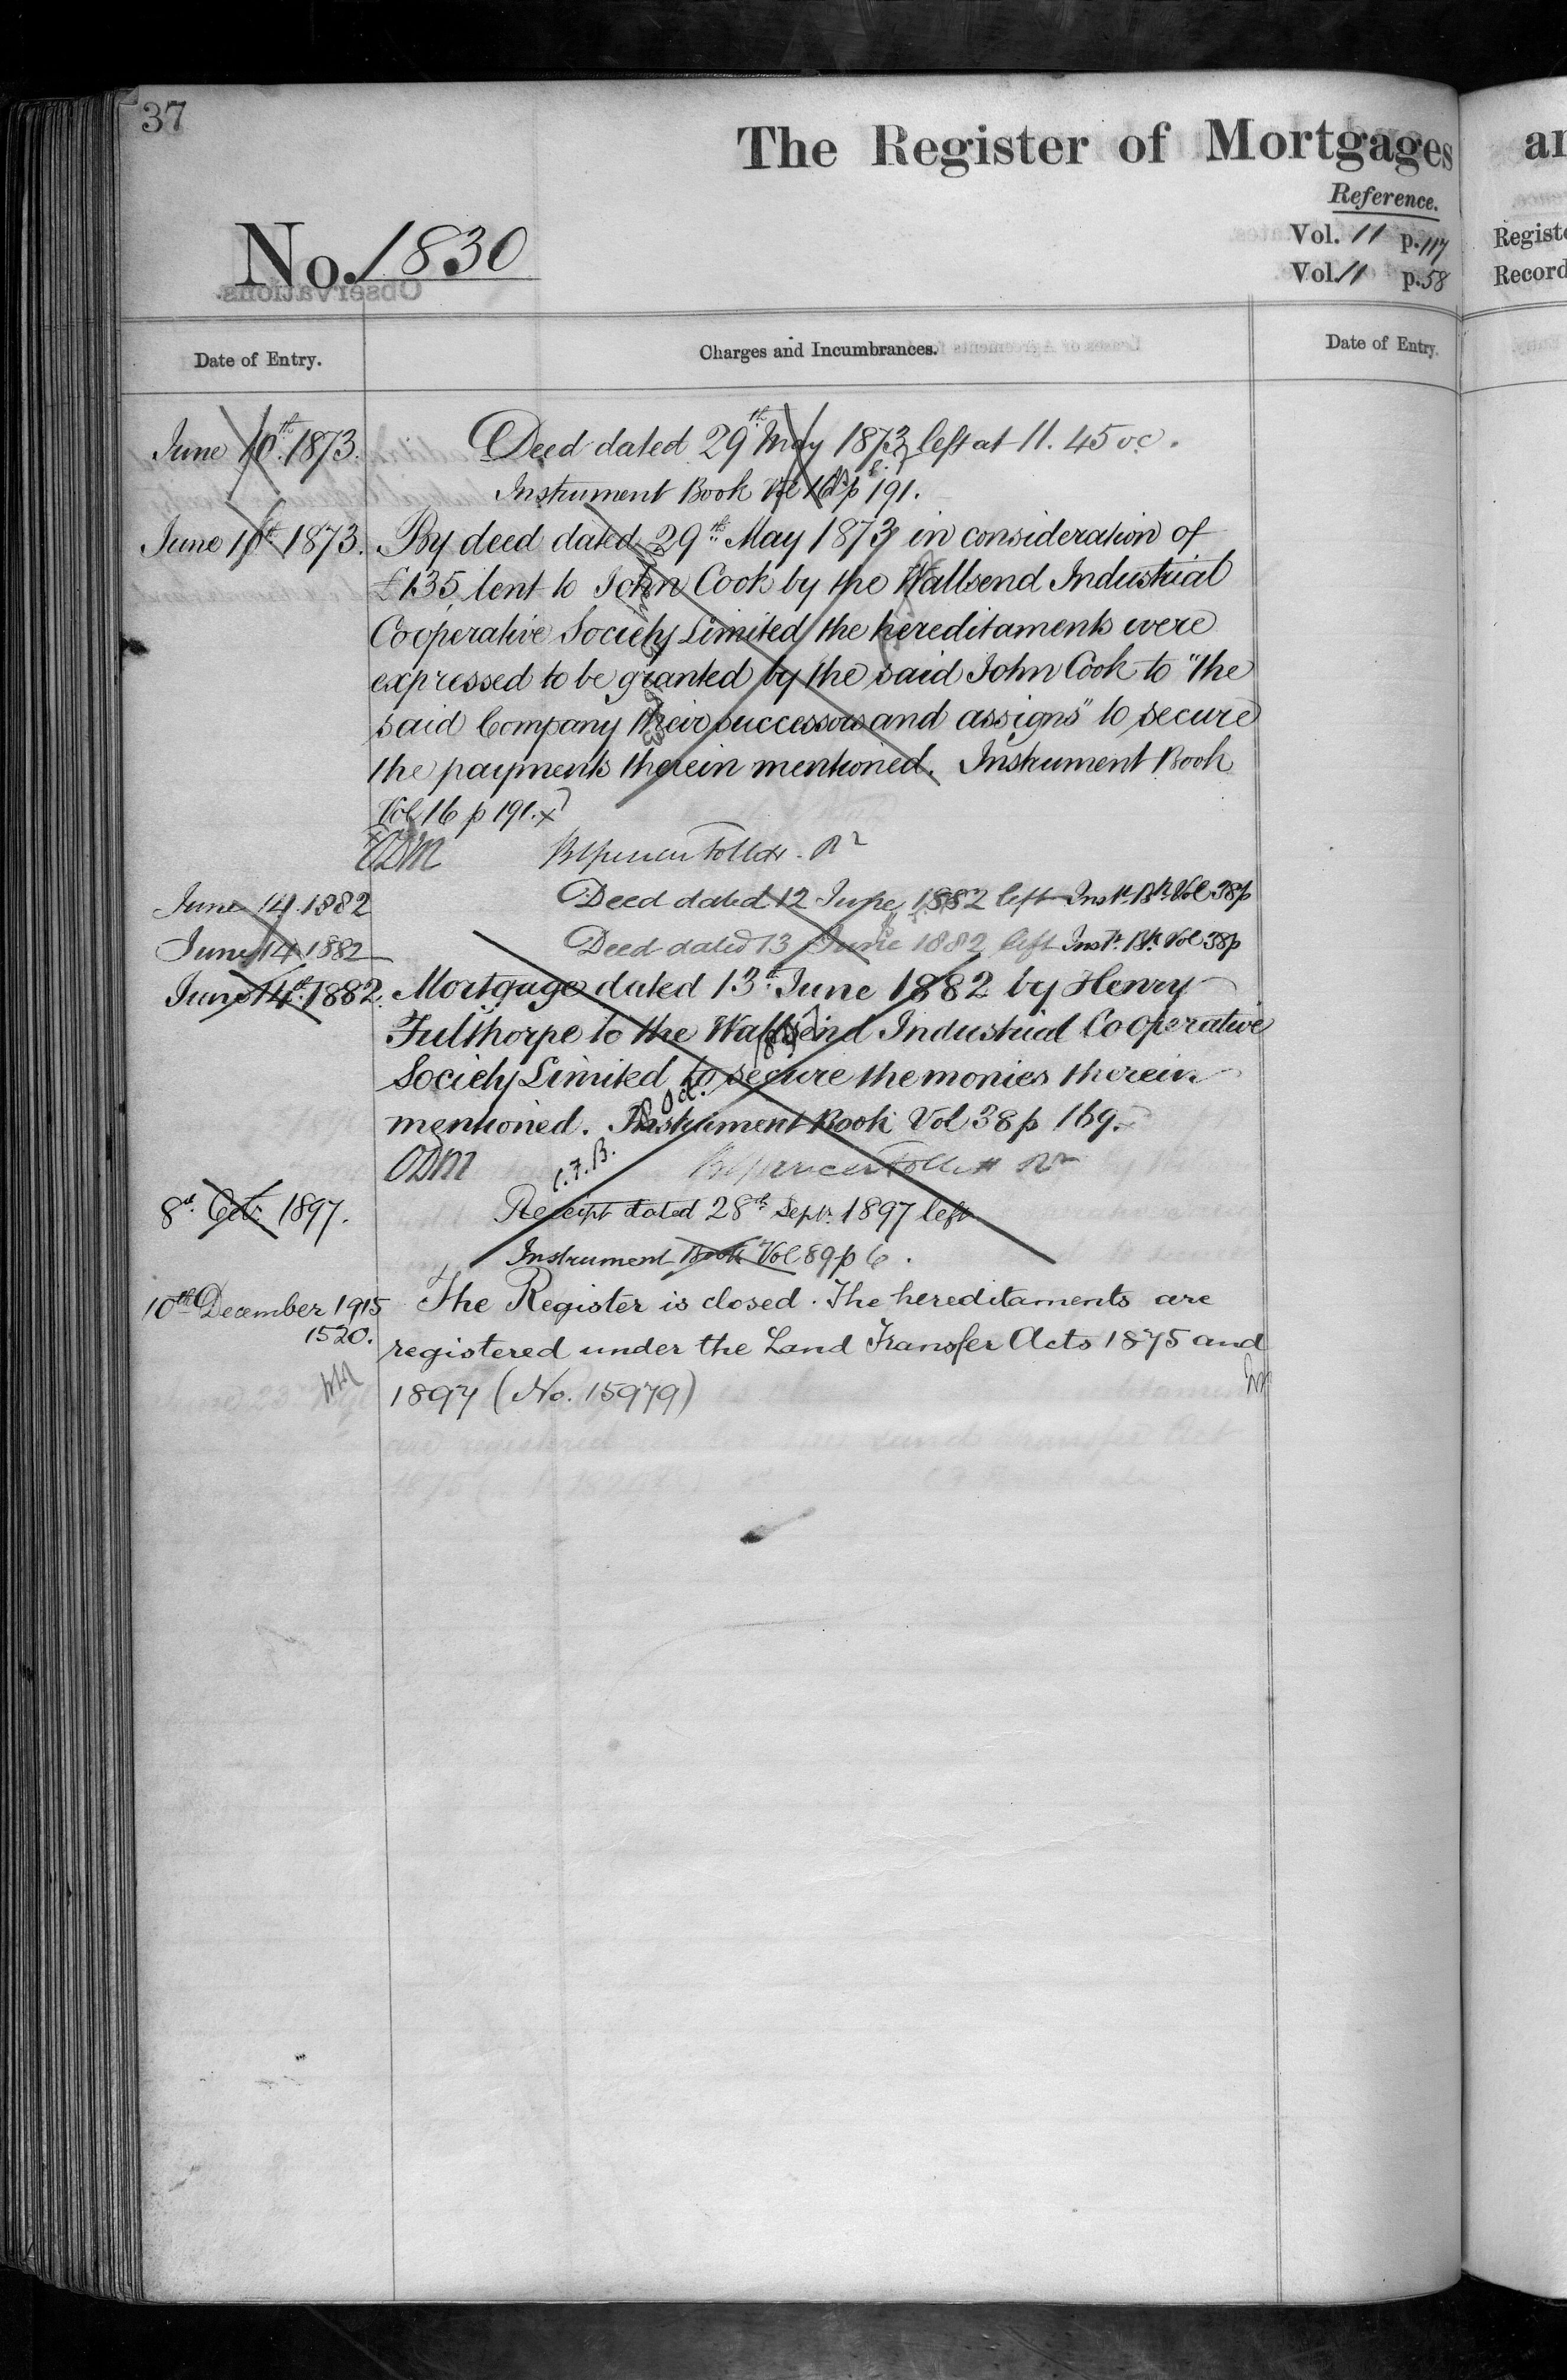 37
The Register of Mortgages
Reference.
No. 1830
Vol. 11 p. 117
Vol. 11 p. 58
Regist
Record
Date of Entry.
Charges and Incumbrances.
Date of Entry.
June 10th 1873.
Deed dated 29th May 1873 left at 11.45 oc.
Instrument Book Vol 16 p 191.
June 1873.
By deed dated 29th May 1873 in consideration of
£135, lent to John Cook by the Wallsend Industrial
Cooperative Society Limited the hereditaments were
expressed to be granted by the said John Cook to "the
said Company their successors and assigns" to secure
the payments therein mentioned. Instrument Book
Vol 16 p 191.
ODM
June 14. 1882
Deed dated 12 June 1882 left Inst. Bk. Vol 38 p
June 14 1882
Deed dated 13 June 1882 left Inst. Bk. Vol 38 p
June 14th 1882.
Mortgage dated 13th June 1882 by Henry
Fulthorpe to the Wallsend Industrial Cooperative
Society Limited to secure the monies therein
mentioned. Instrument Book Vol 38 p 169.
ODM
C.F.B. 8 Oct. 1897
8th Octr. 1897.
Receipt dated 28th Septr. 1897 left
Instrument Book Vol 89 p 6.
10th December 1915
1520.
The Register is closed. The hereditaments are
registered under the Land Transfer Acts 1875 and
1897 (No. 15979)